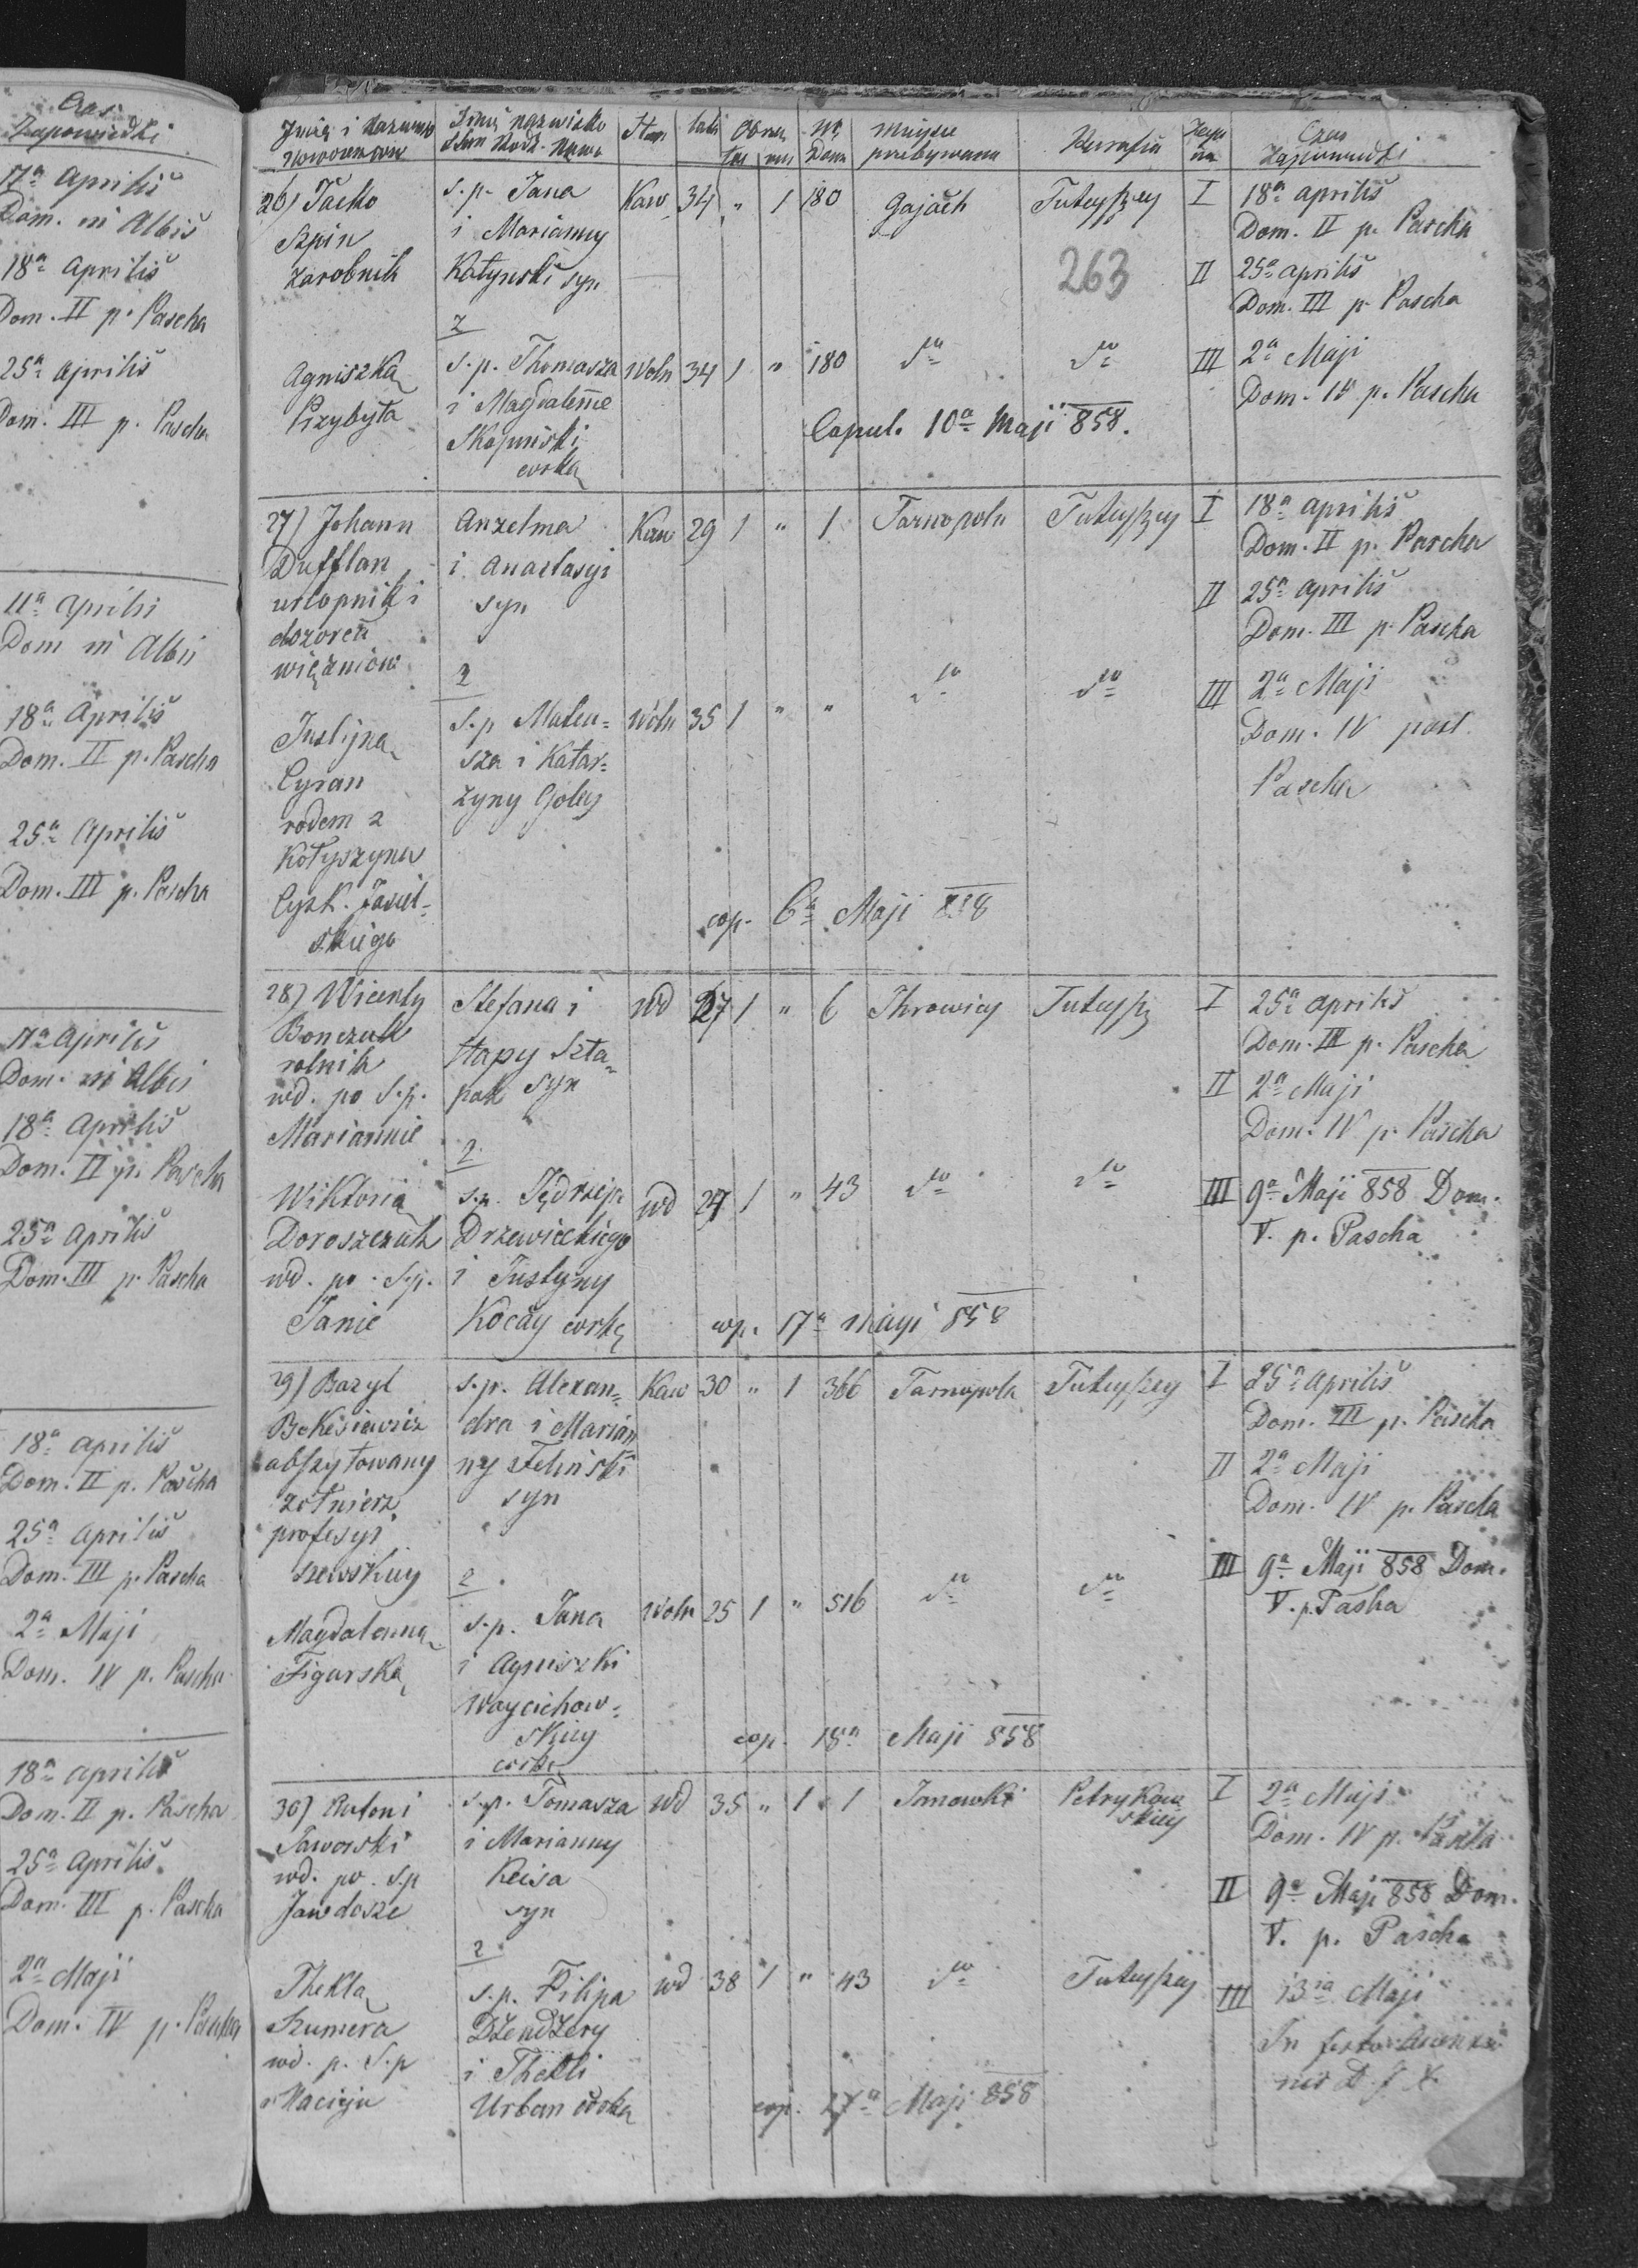 Czas
Zapowiedzi
17ª Aprilis
Dom. in Albis
18ª Aprilis
Dom. II p. Pascha
25ª Aprilis
Dom. III p. Pascha
11ª Aprilis
Dom in Albis
18ª Aprilis
Dom. II p. Pascha
25ª Aprilis
Dom. III p. Pascha
17ª Aprilis
Dom. in Albis
18ª Aprilis
Dom. II p. Pascha
25ª Aprilis
Dom. III p. Pascha
18ª Aprilis
Dom. II p. Pascha
25ª Aprilis
Dom. III p. Pascha
2ª Maji
Dom. IV p. Pascha
18ª Aprilis
Dom. II p. Pascha
25ª Aprilis
Dom. III p. Pascha
2ª Maji
Dom. IV p. Pascha
Imię i Nazwisko Imię nazwisko Stan lata Obrzą Nr miejsce Parafia Czas
Dom przebywania Zapowiedzi
26) Jacko s. p. Jana Kaw 34 " 1 180 Gajach Tutejszej I 18ª Aprilis
Szpin i Marianny Dom. II p. Pascha
zarobnik syn 263 II 25ª Aprilis
Dom. III p. Pascha
2
Agniszka s. p. Thomasza Woln 34 1 " 180 dto dto III 2ª Maji
Przybyła i Magdalenne Dom. IV p. Pascha
córka Copul. 10ª Maji 858.
27) Johann Anzelma Kaw 29 1 " 1 Tarnopolu Tutejszej I 18ª Aprilis
Dufflan i Anastasyi Dom. II p. Pascha
urlopnik i syn II 25ª Aprilis
dozorca Dom. III p. Pascha
więzniów 2
Justyna s. p. Mateu= woln 35 1 " " dto dto III 2ª Maji
Cyran sza i Katar= Dom. IV post
rodem z zyny Goley Pascha
Kołyszyna
Cyrk. Jasiel=
skiego cop. 6ª Maji 858
28) Wicenty Stefana i wd 27 1 " 6 Ihrowicy Tutejsz I 25ª Aprilis
Bonczak Hapy Szta= Dom. III p. Pascha
rolnik pak syn II 2ª Maji
wd. po s. p. Dom. IV p. Pascha
Mariannie 2
Wiktoria s. p. Jędrzeja wd 27 1 " 43 dto dto III 9ª Maji 858 Dom.
Doroszczuk Drzewieckiego V. p. Pascha
wd. po s. p. i Justyny
Janie córkę cop. 17ª Maji 858
29) Bazyl s. p. Alexan= Kaw 30 " 1 366 Tarnopolu Tutejszej I 25ª Aprilis
dra i Marian Dom. III p. Pascha
abszytowany ny Feliński II 2ª Maji
żołnierz syn Dom. IV p. Pascha
profesyi
szewskiey 2 III 9ª Maji 858 Dom.
Magdalenna s. p. Jana woln 25 1 " 516 dto dto V. p. Pasha
Figarska i Agniszki
Wayciechow=
skiey
córkę cop. 18ª Maji 858
30) Antoni s. p. Tomasza wd 35 " 1 1 Janowki Petrykow I 2ª Maji
Jaworski i Marianny skiey Dom. IV p. Pascha
wd. po s. p Keisa II 9ª Maji 858 Dom.
Jawdosze syn V. p. Pascha
2
Thekla s. p. Filipa wd 38 1 " 43 dto Tutejszej III 13ia Maji
Szumera Dżendżery In festo Ascensio
wd. p. s. p i Thekli nis D. J. X.
Macieju Urban córka cop. 27ª Maji 858